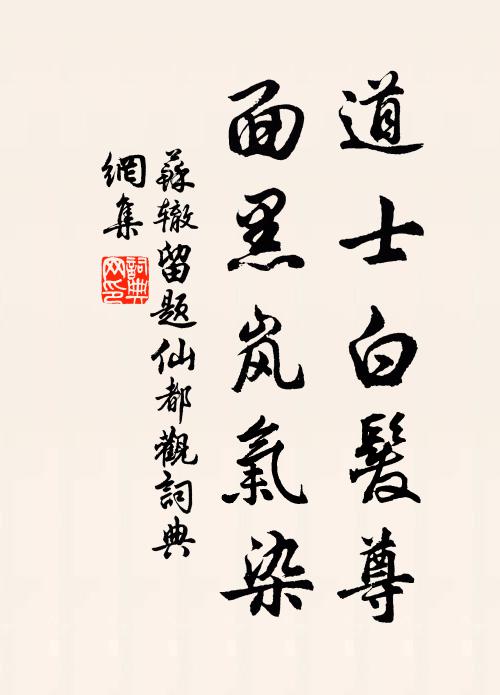 道士白髮尊
面黑岚氣染
蘇辙留题仙都觀詞典
網集
詞典
网印